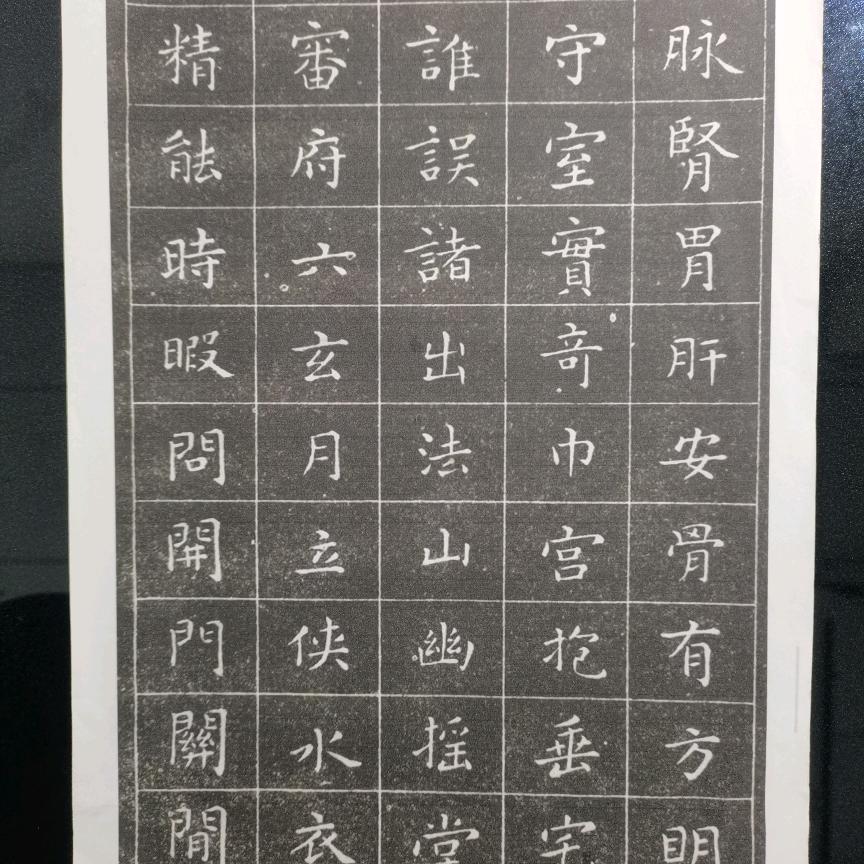 脉腎胃肝安骨有方明
守室實竒巾宫抱垂宇
誰誤諸出法山幽摇堂
審府六玄月立侠水衣
精能時暇問開門關間